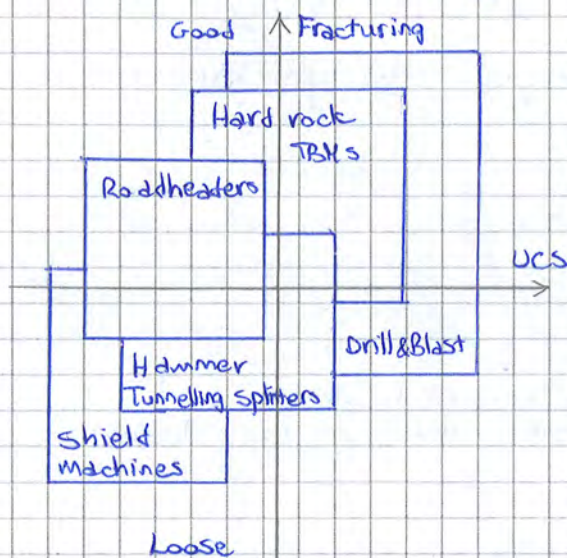 Good Fracturing
Hard rock
TBMs
Roadheaders
UCS
Drill&Blast
Hammer
Tunnelling Splitters
Shield
Machines
Loose